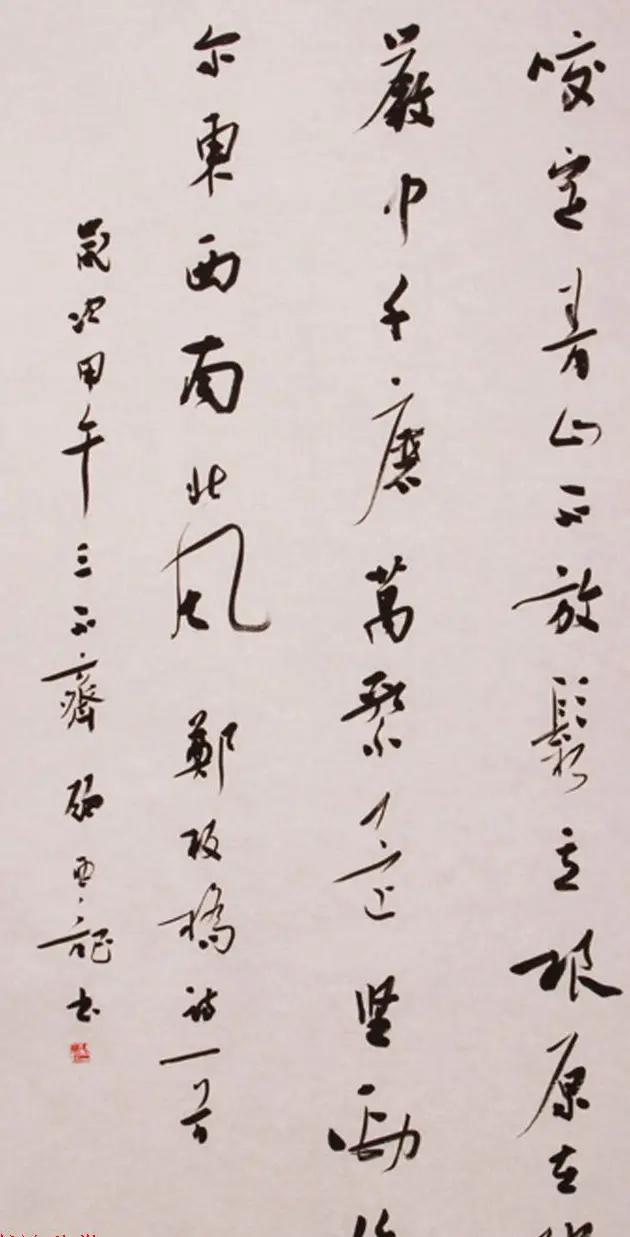 咬定青山不放鬆立根原在
巖中千磨萬擊還坚勁
尔東西南北風 鄭板橋詩一首
歲次甲午三不齋書